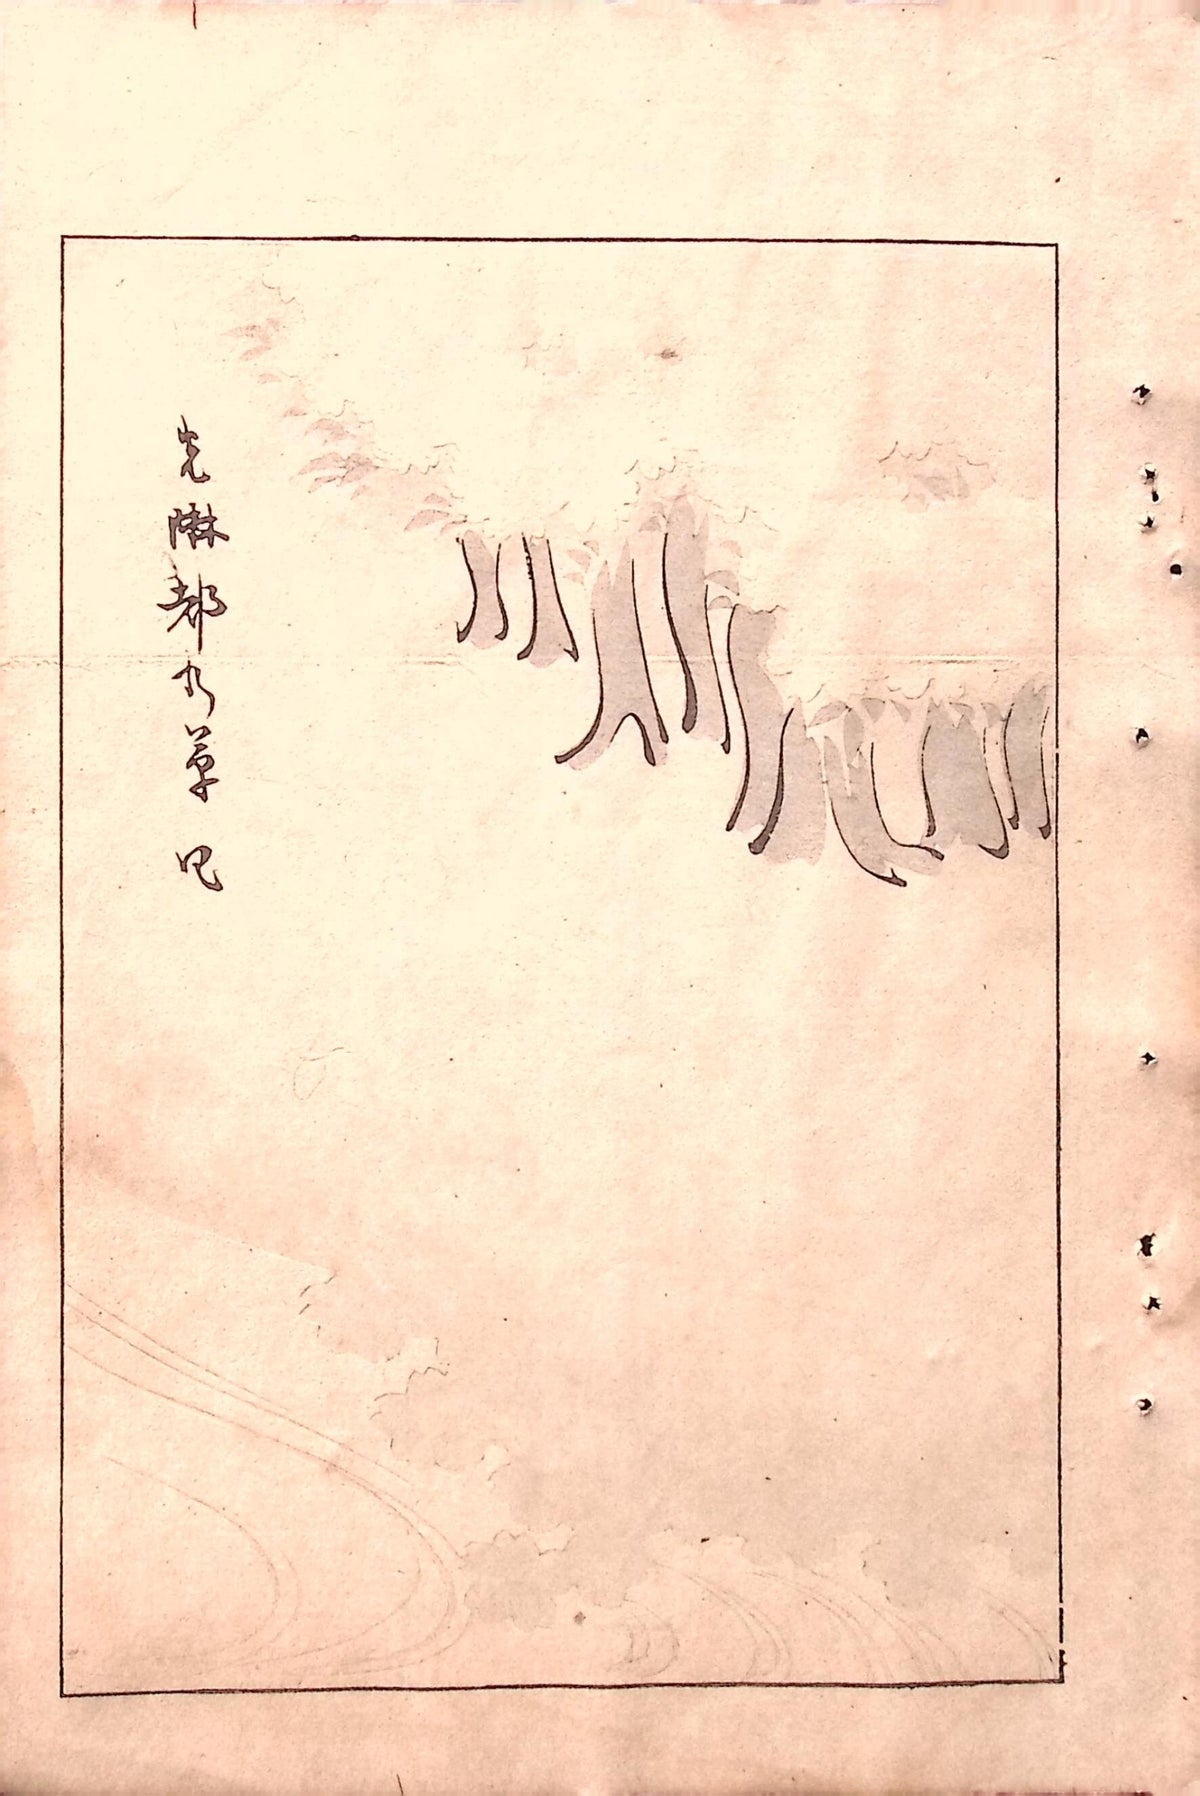 光琳都乃草已